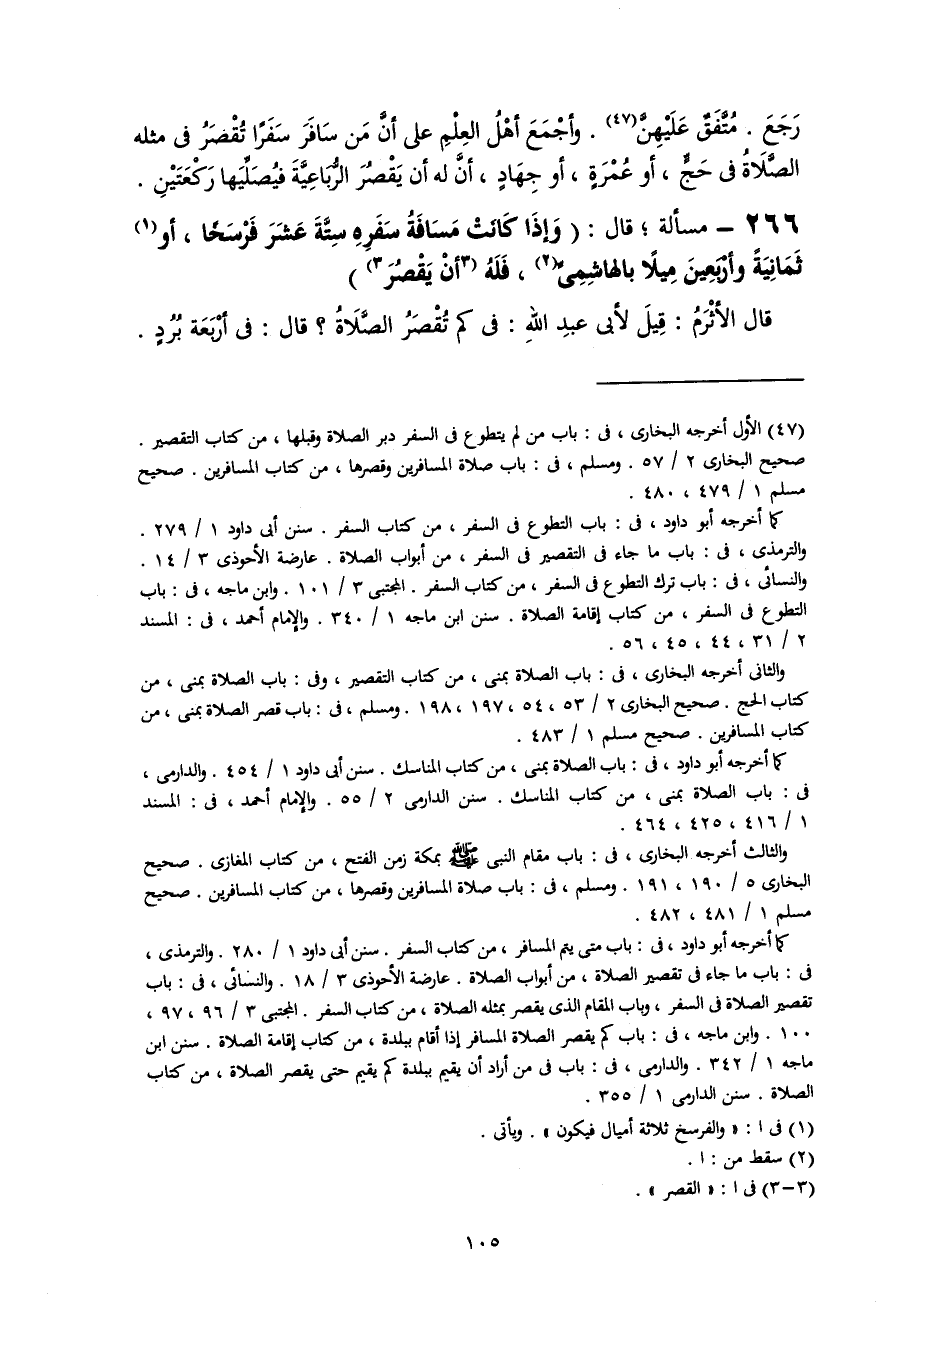 رَجَعَ . مُتَّفَقٌ عَلَيْهِنَّ(٤٧) . وأجْمَعَ أهْلُ العِلْمِ على أنَّ مَن سَافَرَ سَفَرًا تُقْصَرُ فى مثله
الصَّلَاةُ فى حَجٍّ ، أو عُمْرَةٍ ، أو جِهَادٍ ، أنَّ له أن يَقْصُرَ الرُّبَاعِيَّةَ فيُصَلِّيَها رَكْعَتَيْنِ .
٢٦٦ – مسألة ؛ قال : ( وَإذَا كَانَتْ مَسَافَةُ سَفَرِهِ سِتَّةَ عَشَرَ فَرْسَخًا ، أو(١)
ثَمَانِيَةً وأرْبَعِينَ مِيلًا بالهَاشِمِىِّ(٢) ، فَلَهُ (٣أنْ يَقْصُرَ٣) )
قال الأثْرَمُ : قِيلَ لأبى عبدِ اللهِ : فى كم تُقْصَرُ الصَّلَاةُ ؟ قال : فى أرْبَعَة بُرُدٍ .
(٤٧) الأول أخرجه البخارى ، فى : باب من لم يتطوع فى السفر دبر الصلاة وقبلها ، من كتاب التقصير .
صحيح البخارى ٢ / ٥٧ . ومسلم ، فى : باب صلاة المسافرين وقصرها ، من كتاب المسافرين . صحيح
مسلم ١ / ٤٧٩ ، ٤٨٠ .
كما أخرجه أبو داود ، فى : باب التطوع فى السفر ، من كتاب السفر . سنن أبى داود ١ / ٢٧٩ .
والترمذى ، فى : باب ما جاء فى التقصير فى السفر ، من أبواب الصلاة . عارضة الأحوذى ٣ / ١٤ .
والنسائى ، فى : باب ترك التطوع فى السفر ، من كتاب السفر . المجتبى ٣ / ١٠١ . وابن ماجه ، فى : باب
التطوع فى السفر ، من كتاب إقامة الصلاة . سنن ابن ماجه ١ / ٣٤٠ . والإمام أحمد ، فى : المسند
٢ / ٣١ ، ٤٤ ، ٤٥ ، ٥٦ .
والثانى أخرجه البخارى ، فى : باب الصلاة بمنى ، من كتاب التقصير ، وفى : باب الصلاة بمنى ، من
كتاب الحج . صحيح البخارى ٢ / ٥٣ ، ٥٤ ، ١٩٧ ، ١٩٨ . ومسلم ، فى : باب قصر الصلاة بمنى ، من
كتاب المسافرين . صحيح مسلم ١ / ٤٨٣ .
كما أخرجه أبو داود ، فى : باب الصلاة بمنى ، من كتاب المناسك . سنن أبى داود ١ / ٤٥٤ . والدارمى ،
فى : باب الصلاة بمنى ، من كتاب المناسك . سنن الدارمى ٢ / ٥٥ . والإمام أحمد ، فى : المسند
١ / ٤١٦ ، ٤٢٥ ، ٤٦٤ .
والثالث أخرجه البخارى ، فى : باب مقام النبى ﷺ بمكة زمن الفتح ، من كتاب المغازى . صحيح
البخارى ٥ / ١٩٠ ، ١٩١ . ومسلم ، فى : باب صلاة المسافرين وقصرها ، من كتاب المسافرين . صحيح
مسلم ١ / ٤٨١ ، ٤٨٢ .
كما أخرجه أبو داود ، فى : باب متى يتم المسافر ، من كتاب السفر . سنن أبى داود ١ / ٢٨٠ . والترمذى ،
فى : باب ما جاء فى تقصير الصلاة ، من أبواب الصلاة . عارضة الأحوذى ٣ / ١٨ . والنسائى ، فى : باب
تقصير الصلاة فى السفر ، وباب المقام الذى يقصر بمثله الصلاة ، من كتاب السفر . المجتبى ٣ / ٩٦ ، ٩٧ ،
١٠٠ . وابن ماجه ، فى : باب كم يقصر الصلاة المسافر إذا أقام ببلدة ، من كتاب إقامة الصلاة . سنن ابن
ماجه ١ / ٣٤٢ . والدارمى ، فى : باب فى من أراد أن يقيم ببلدة كم يقيم حتى يقصر الصلاة ، من كتاب
الصلاة . سنن الدارمى ١ / ٣٥٥ .
(١) فى ا : « والفرسخ ثلاثة أميال فيكون » . ويأتى .
(٢) سقط من : ا .
(٣-٣) فى ا : « القصر » .
١٠٥